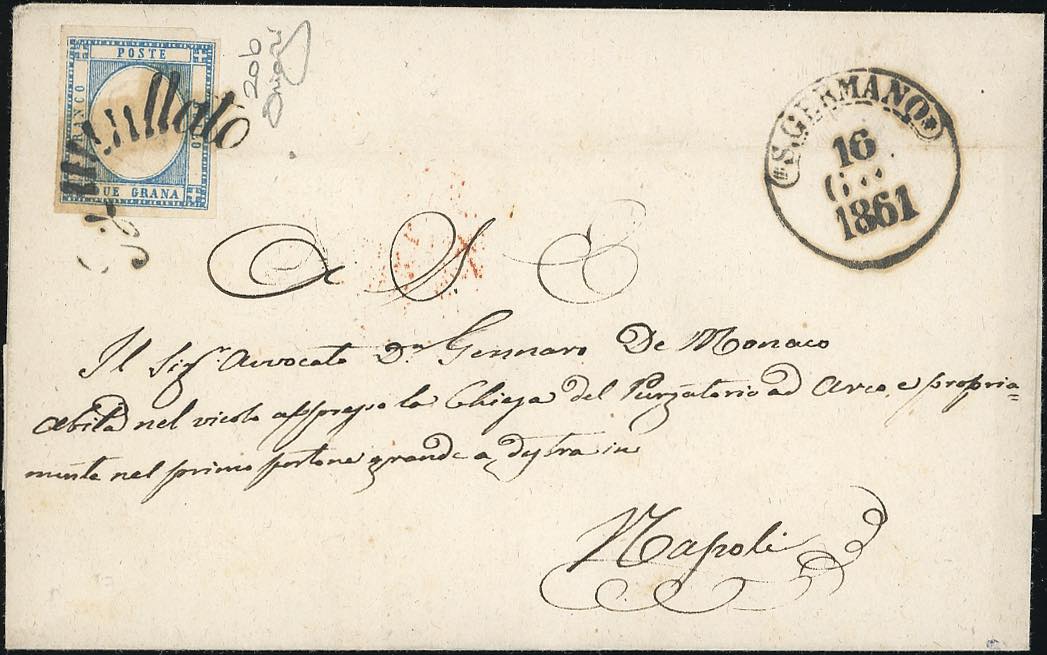 POSTE
FRANCO
BOLLO
DUE GRANA
Annullato
20b
S. GERMANO
16
1861
A S. E.
Il Sigr. Avvocato Dn Gennaro De Monaco
abita nel vicolo appresso la Chiesa del Purgatorio ad Arco, e propria=
mente nel primo portone grande a destra in
Napoli